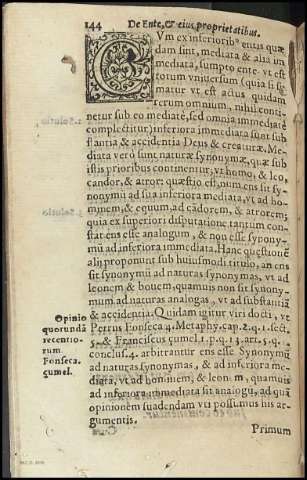 144 De Ente, & eius proprietatibus.
CVm ex inferiorib' entis quæ
dam sint, mediata & alia im
mediata, sumpto ente vt est
totum vniuersum (quia si su
matur vt est actus quidam
rerum omnium, nihil conti
netur sub eo mediatè, sed omnia immediatè
complectitur) inferiora immediata sunt sub
stantia & accidentia Deus & creaturæ. Me
diata verò sunt naturæ synonymæ, quæ sub
istis prioribus continentur, vt homo, & leo,
candor, & atror: quæstio est, num ens sit sy-
nonymũ ad sua inferiora mediata, vt ad ho-
minem, & equum, ad cãdorem, & atrorem;
quia ex superiori disputatione tantum con-
stat ens esse analogum, & non esse synony-
mũ ad inferiora immediata. Hanc quæstionẽ
alij proponunt sub huiusmodi titulo, an ens
sit synonymũ ad naturas synonymas, vt ad
leonem & bouem, quamuis non sit synony-
mum ad naturas analogas, vt ad substantiã
& accidentia. Quidam igitur viri docti, vt
Petrus Fonseca 4. Metaphy. cap. 2. q. 1. sect.
5. & Franciscus çumel. 1. p. q. 13. art. 5. q.
conclus. 4. arbitrantur ens esse Synonymũ
ad naturas synonymas, & ad inferiora me-
diata, vt ad hominem, & leonẽ, quamuis
ad inferiora immediata sit analogũ, ad quã
opinionem suadendam vti possumus his ar-
gumentis.
Primum
Opinio
quorundã
recentio-
rum
Fonseca.
çumel.